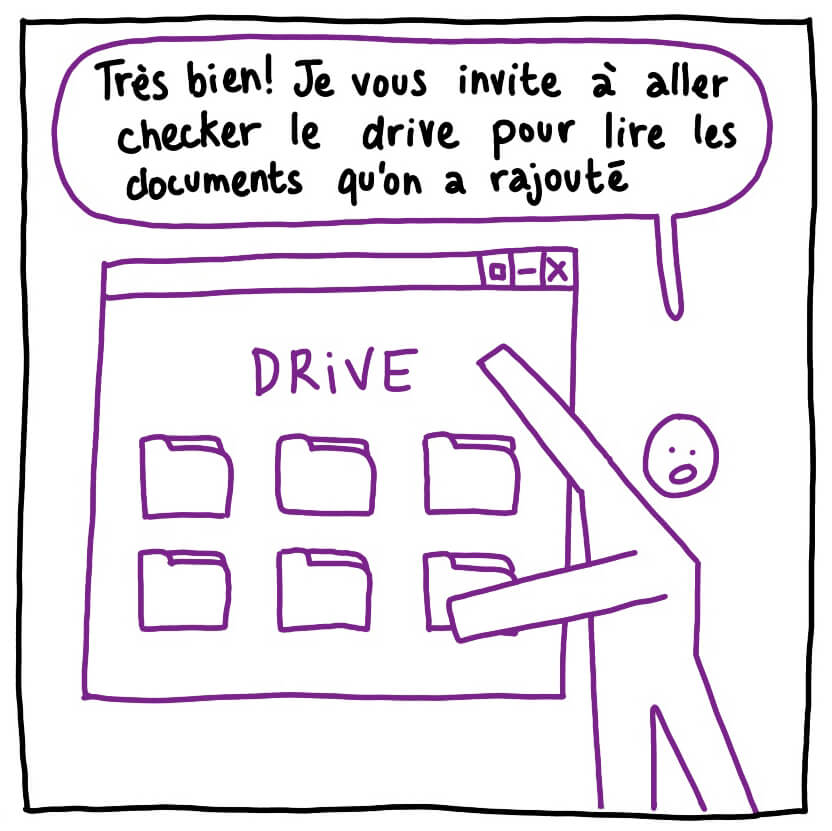 Très bien! Je vous invite à aller
checker le drive pour lire les
documents qu'on a rajouté
DRiVE